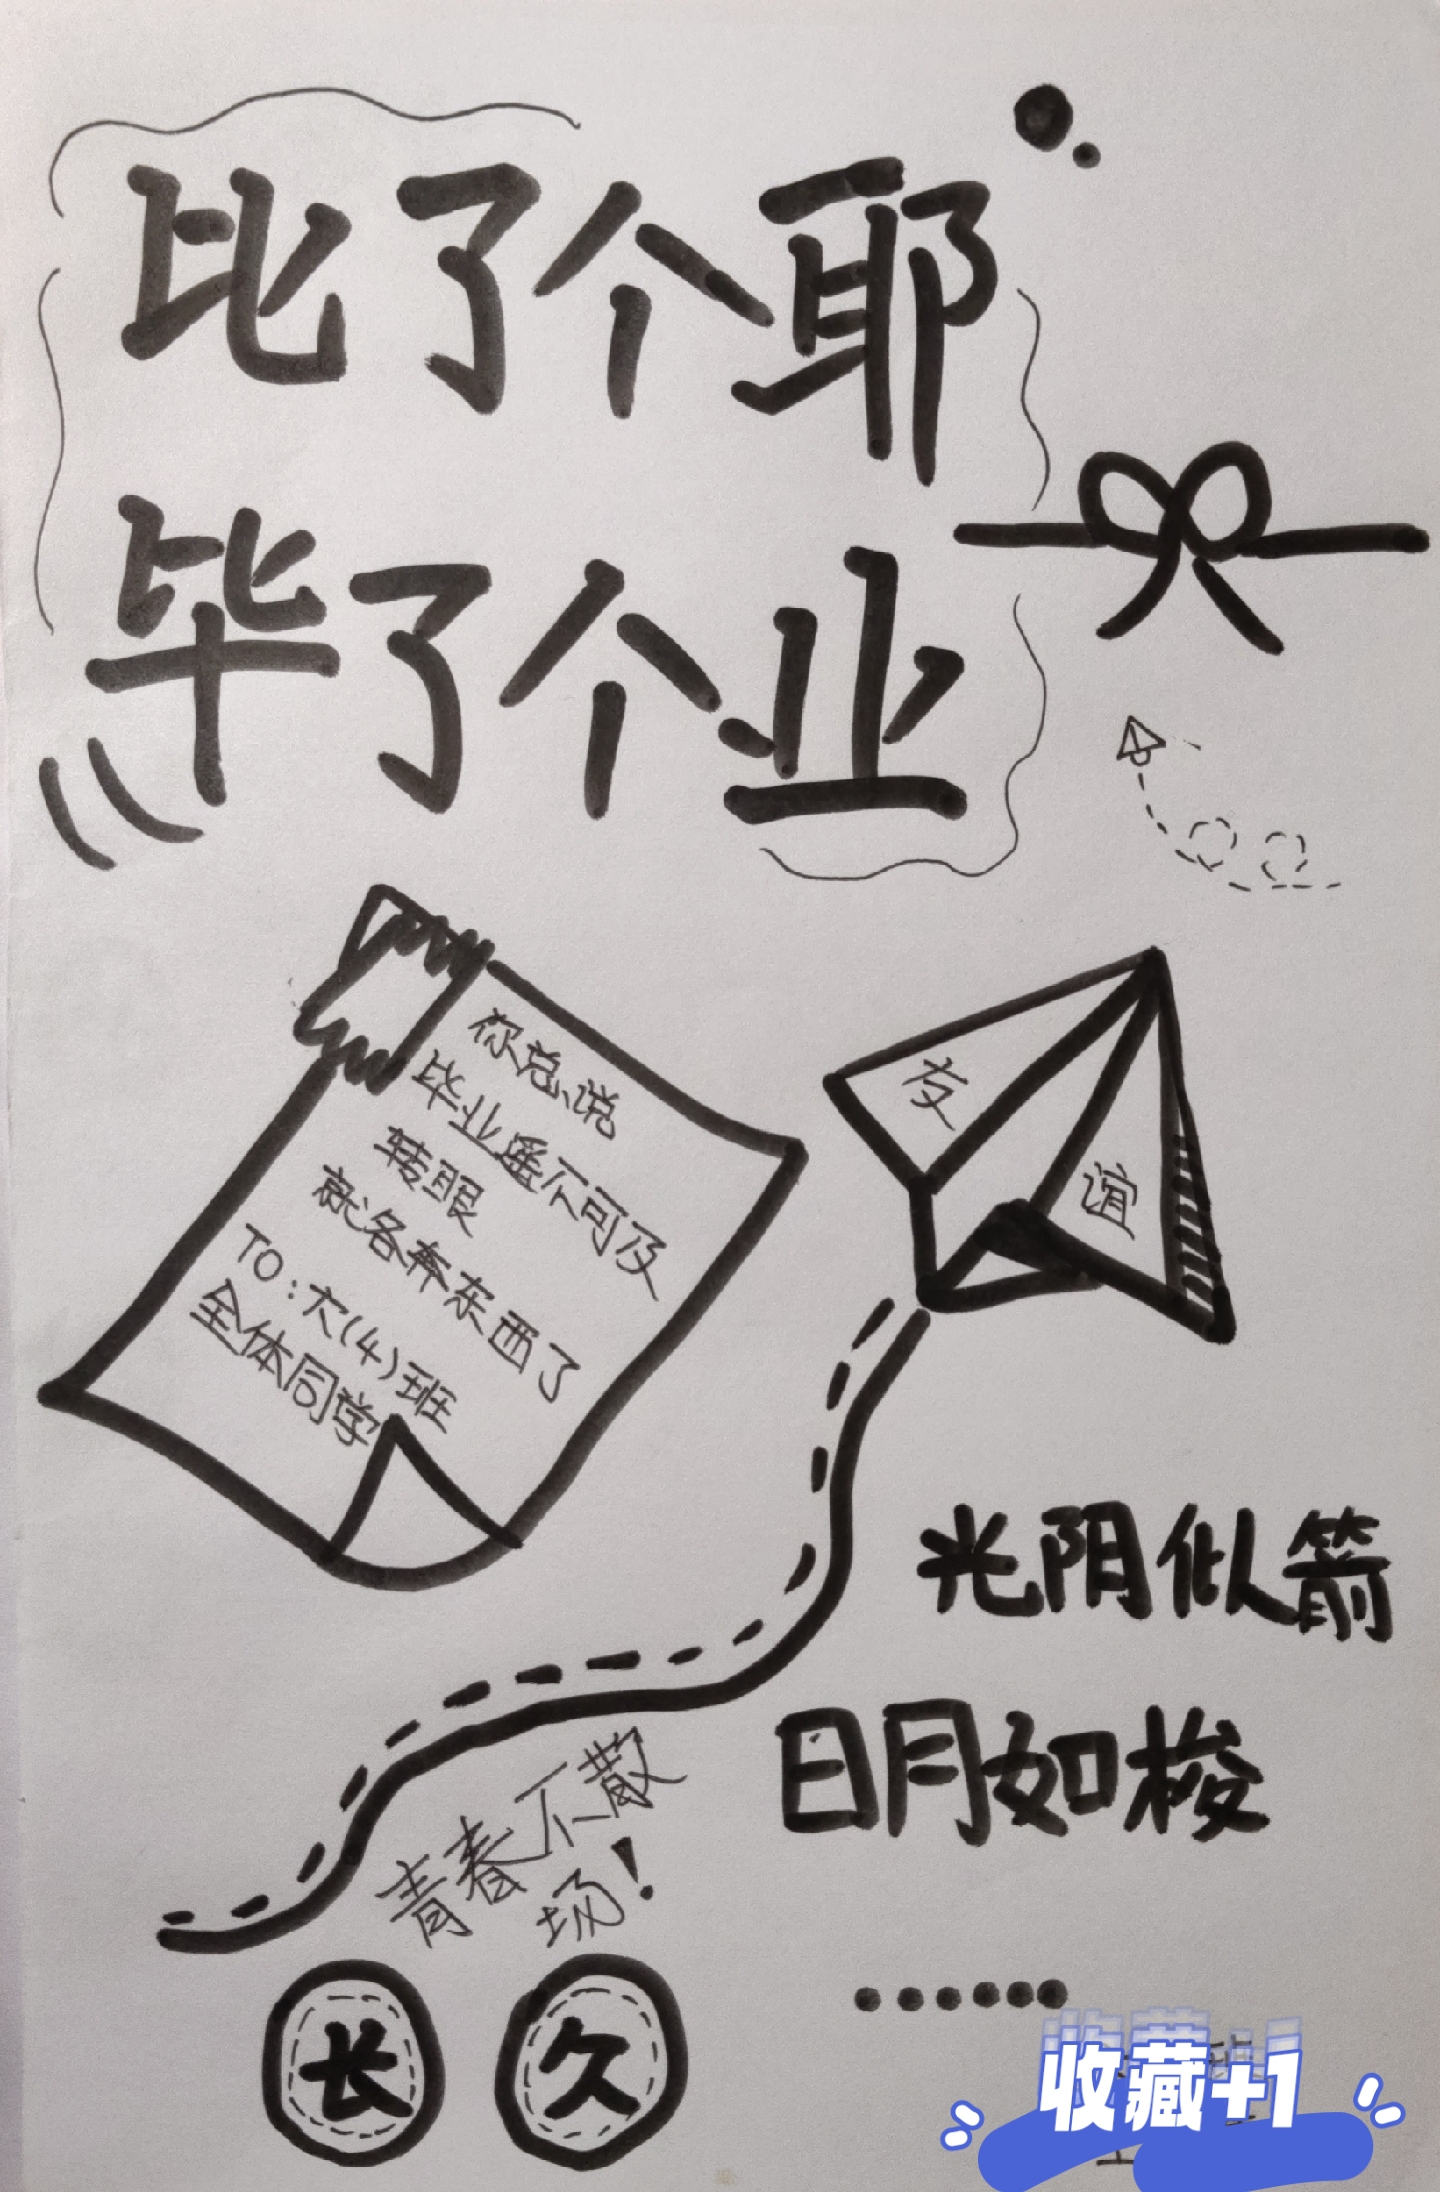 比了个耶
毕了个业
你总说
毕业遥不可及
转眼
就各奔东西了
TO:六(4)班
全体同学
友
谊
光阴似箭
日月如梭
青春不散
场!
长
久
收藏+1